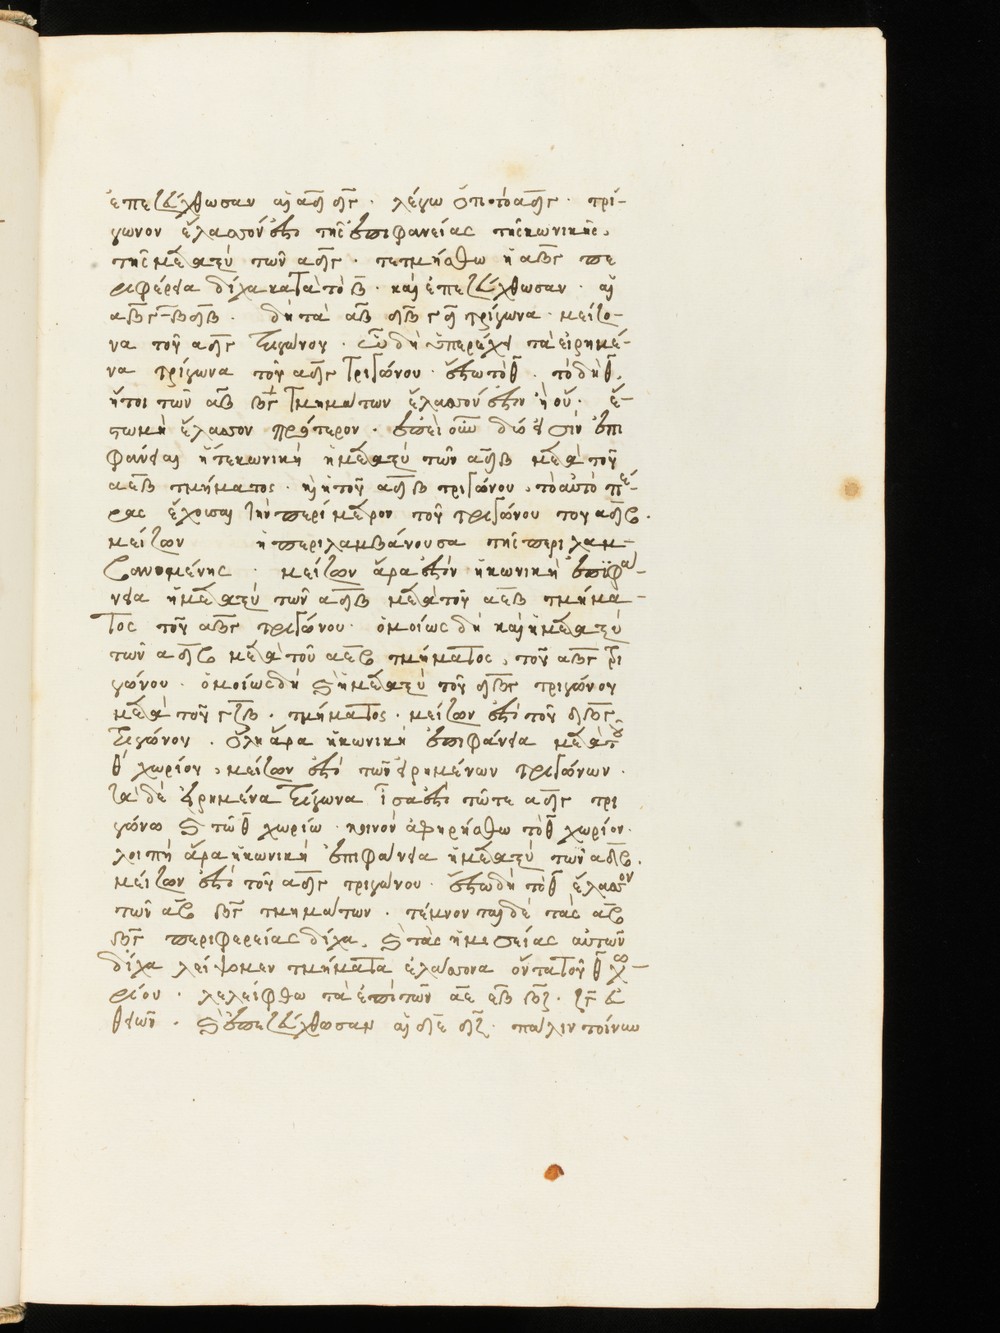 ἐπεζεύχθωσαν αἱ αδ δγ · λέγω ὅτι τὸ αδγ · τρί-
γωνον ἔλασσόν ἐστι τῆς ἐπιφανείας τῆς κωνικῆς,
τῆς μεταξὺ τῶν αδγ · τετμήσθω ἡ αβγ πε
ριφέρεια δίχα κατὰ τὸ β · καὶ ἐπεζεύχθωσαν · αἱ
αβ γβ δβ · δὴ τὰ αβδ δβγ τρίγωνα · μείζο-
να τοῦ αδγ τριγώνου · ᾧ δὴ ὑπερέχει τὰ εἰρημέ-
να τρίγωνα τοῦ αδγ τριγώνου · ἔστω τὸ θ · τὸ δὴ θ,
ἤτοι τῶν αβ βγ τμημάτων ἔλασσόν ἐστιν ἢ οὔ · ἔ-
στω μὴ ἔλασσον πρότερον · ἐπεὶ οὖν δύο εἰσὶν ἐπι
φάνειαι ἥ τε κωνικὴ ἡ μεταξὺ τῶν αδβ μετὰ τοῦ
αεβ τμήματος · καὶ ἡ τοῦ αδβ τριγώνου, τὸ αὐτὸ πέ-
ρας ἔχουσαι τὴν περίμετρον τοῦ τριγώνου του αδβ ·
μείζων ἡ περιλαμβάνουσα τῆς περιλαμ-
βανομένης · μείζων ἄρα ἐστὶν ἡ κωνικὴ ἐπιφά-
νεια ἡ μεταξὺ τῶν αδβ μετὰ τοῦ αεβ τμήμα-
τος τοῦ αβδ τριγώνου · ὁμοίως δὴ καὶ ἡ μεταξὺ
τῶν αδβ μετὰ τοῦ αεβ τμήματος, τοῦ αβγ τρι
γώνου · ὁμοίως δὴ καὶ ἡ μεταξὺ τοῦ δβγ τριγώνου
μετὰ τοῦ γζβ · τμήματος · μείζων ἐστὶ τοῦ δβγ
τριγώνου · ὅλη ἄρα ἡ κωνικὴ ἐπιφάνεια μετὰ τοῦ
θ χωρίου, μείζων ἐστὶ τῶν εἰρημένων τριγώνων ·
τὰ δὲ εἰρημένα τρίγωνα ἴσα ἐστὶ τῶ τε αδγ τρι
γώνω καὶ τῶ θ χωρίω · κοινὸν ἀφηρήσθω τὸ θ χωρίον ·
λοιπὴ ἄρα ἡ κωνικὴ ἐπιφάνεια ἡ μεταξὺ τῶν αδγ ·
μείζων ἐστὶ τοῦ αδγ τριγώνου · ἔστω δὴ τὸ θ ἔλασσον
τῶν αβ βγ τμημάτων · τέμνονται δὲ τὰς αβ
βγ περιφερείας δίχα, καὶ τὰς ἡμισείας αὐτῶν
δίχα λείψομεν τμήματα ἐλάσσονα ὄντα τοῦ θ χω-
ρίου · λελείφθω τὰ ἐπὶ τῶν αε εβ βζ · ζγ εὐ
θειῶν · καὶ ἐπεζεύχθωσαν αἱ δε δζ · πάλιν τοίνυν